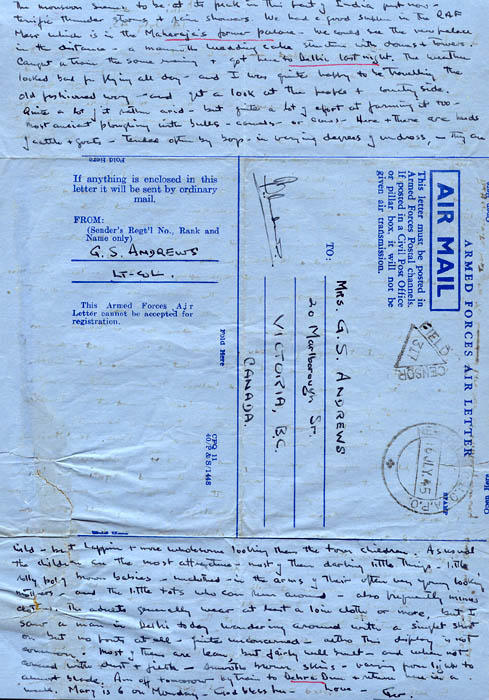 The monsoon seems to be at its peak in this part of India just now -
terrific thunder storms & rain showers. We had a good supper in the RAF
Mess which is in the Maharaja's former palace - we could see the new palace
in the distance - a mammoth wedding cake structure with domes & towers.
Caught a train the same evening & got here to Delhi last night. The weather
looked bad for flying all day - and I was quite happy to be travelling the
old fashioned way - and get a look at the people & country side.
Quite a lot of it rather arid - but quite a lot of effort at farming it too -
most ancient ploughing with bulls - camels - or cows - Here & there are herds
of cattle & goats - tended often by boys - in varying degrees of undress, - they are
Fold Here
If anything is enclosed in this
letter it will be sent by ordinary
mail.
FROM:
(Sender's Regt'l No., Rank and
Name only)
G. S. ANDREWS
LT-COL.
This Armed Forces Air
Letter cannot be accepted for
registration.
Fold Here
CFQ 11
40/P & S/1448
ARMED FORCES AIR LETTER
AIR MAIL
This letter must be posted in
Armed Forces Postal channels.
If posted in a Civil Post Office
or pillar box, it will not be
given air transmission.
FIELD
CENSOR
STAMP
JLY 45
TO:
MRS. G. S. ANDREWS
20 Marlborough St.
VICTORIA, B.C.
CANADA.
- but happier & more wholesome looking than the town children. As usual
the children are the most attractive - most of them darling little things - little
holy brown babies - unclothed - in the arms of their often very young looking
mothers - and the little tots who can run around - also frequently minus
clothes. The adults generally wear at least a loin cloth or more, but I
saw a man in Delhi today wandering around with a singlet shirt
on but no pants at all - quite unconcerned - altho this display is not
common - most of them are lean, but fairly well built - and when not
covered with dust & filth - smooth brown skins - varying from light to
almost black. Am off tomorrow by train to Dehra Dun & return here in a
week. Mary is 6 on Monday - God bless her